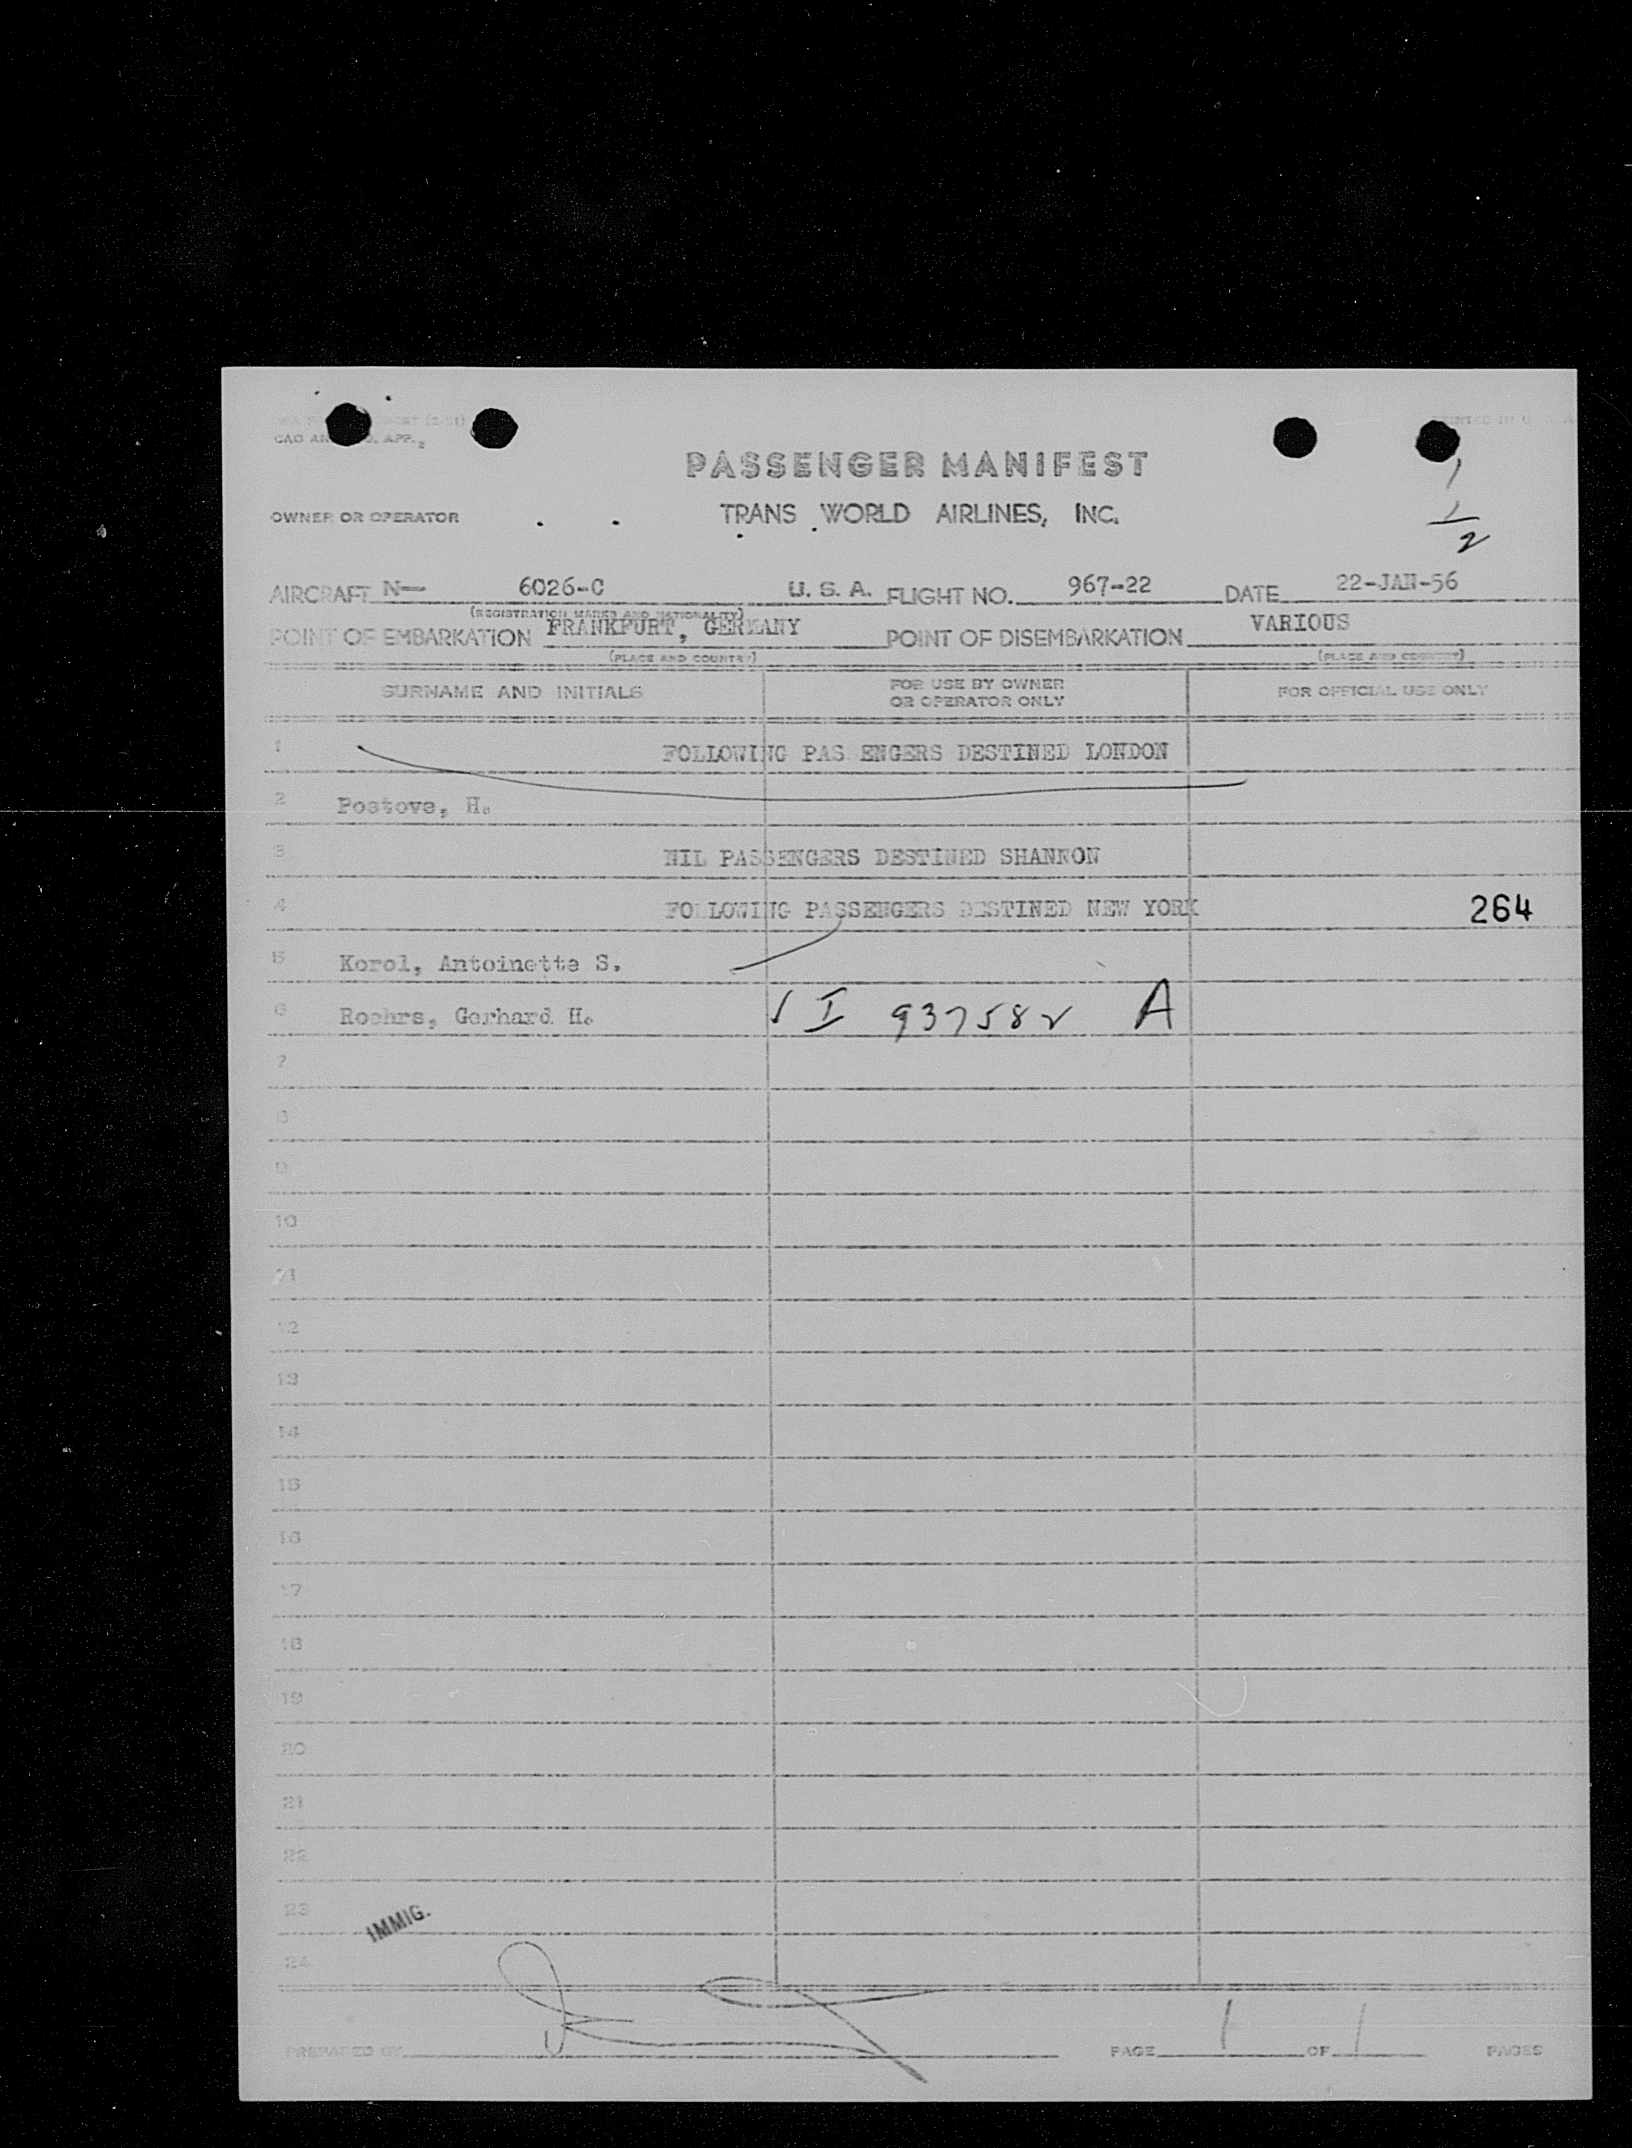 CAO AN
APP. 2
PASSENGER MANIFEST
OWNER OR OPERATOR
TRANS WORLD AIRLINES, INC.
1
1
2
AIRCRAFT N— 6026-C U. S. A. FLIGHT NO. 967-22 DATE 22-JAN-56
(REGISTRATION MARKS AND NATIONALITY)
POINT OF EMBARKATION FRANKFURT, GERMANY POINT OF DISEMBARKATION VARIOUS
(PLACE AND COUNTRY) (PLACE AND COUNTRY)
SURNAME AND INITIALS FOR USE BY OWNER OR OPERATOR ONLY FOR OFFICIAL USE ONLY
1 FOLLOWING PAS ENGERS DESTINED LONDON
2 Postove, H.
3 NIL PASSENGERS DESTINED SHANNON
4 FOLLOWING PASSENGERS DESTINED NEW YORK 264
5 Korol, Antoinette S.
6 Roehrs, Gerhard H. √ I 937582 A
7
8
9
10
11
12
13
14
15
16
17
18
19
20
21
22
23
IMMIG.
24
PREPARED BY PAGE 1 OF 1 PAGES